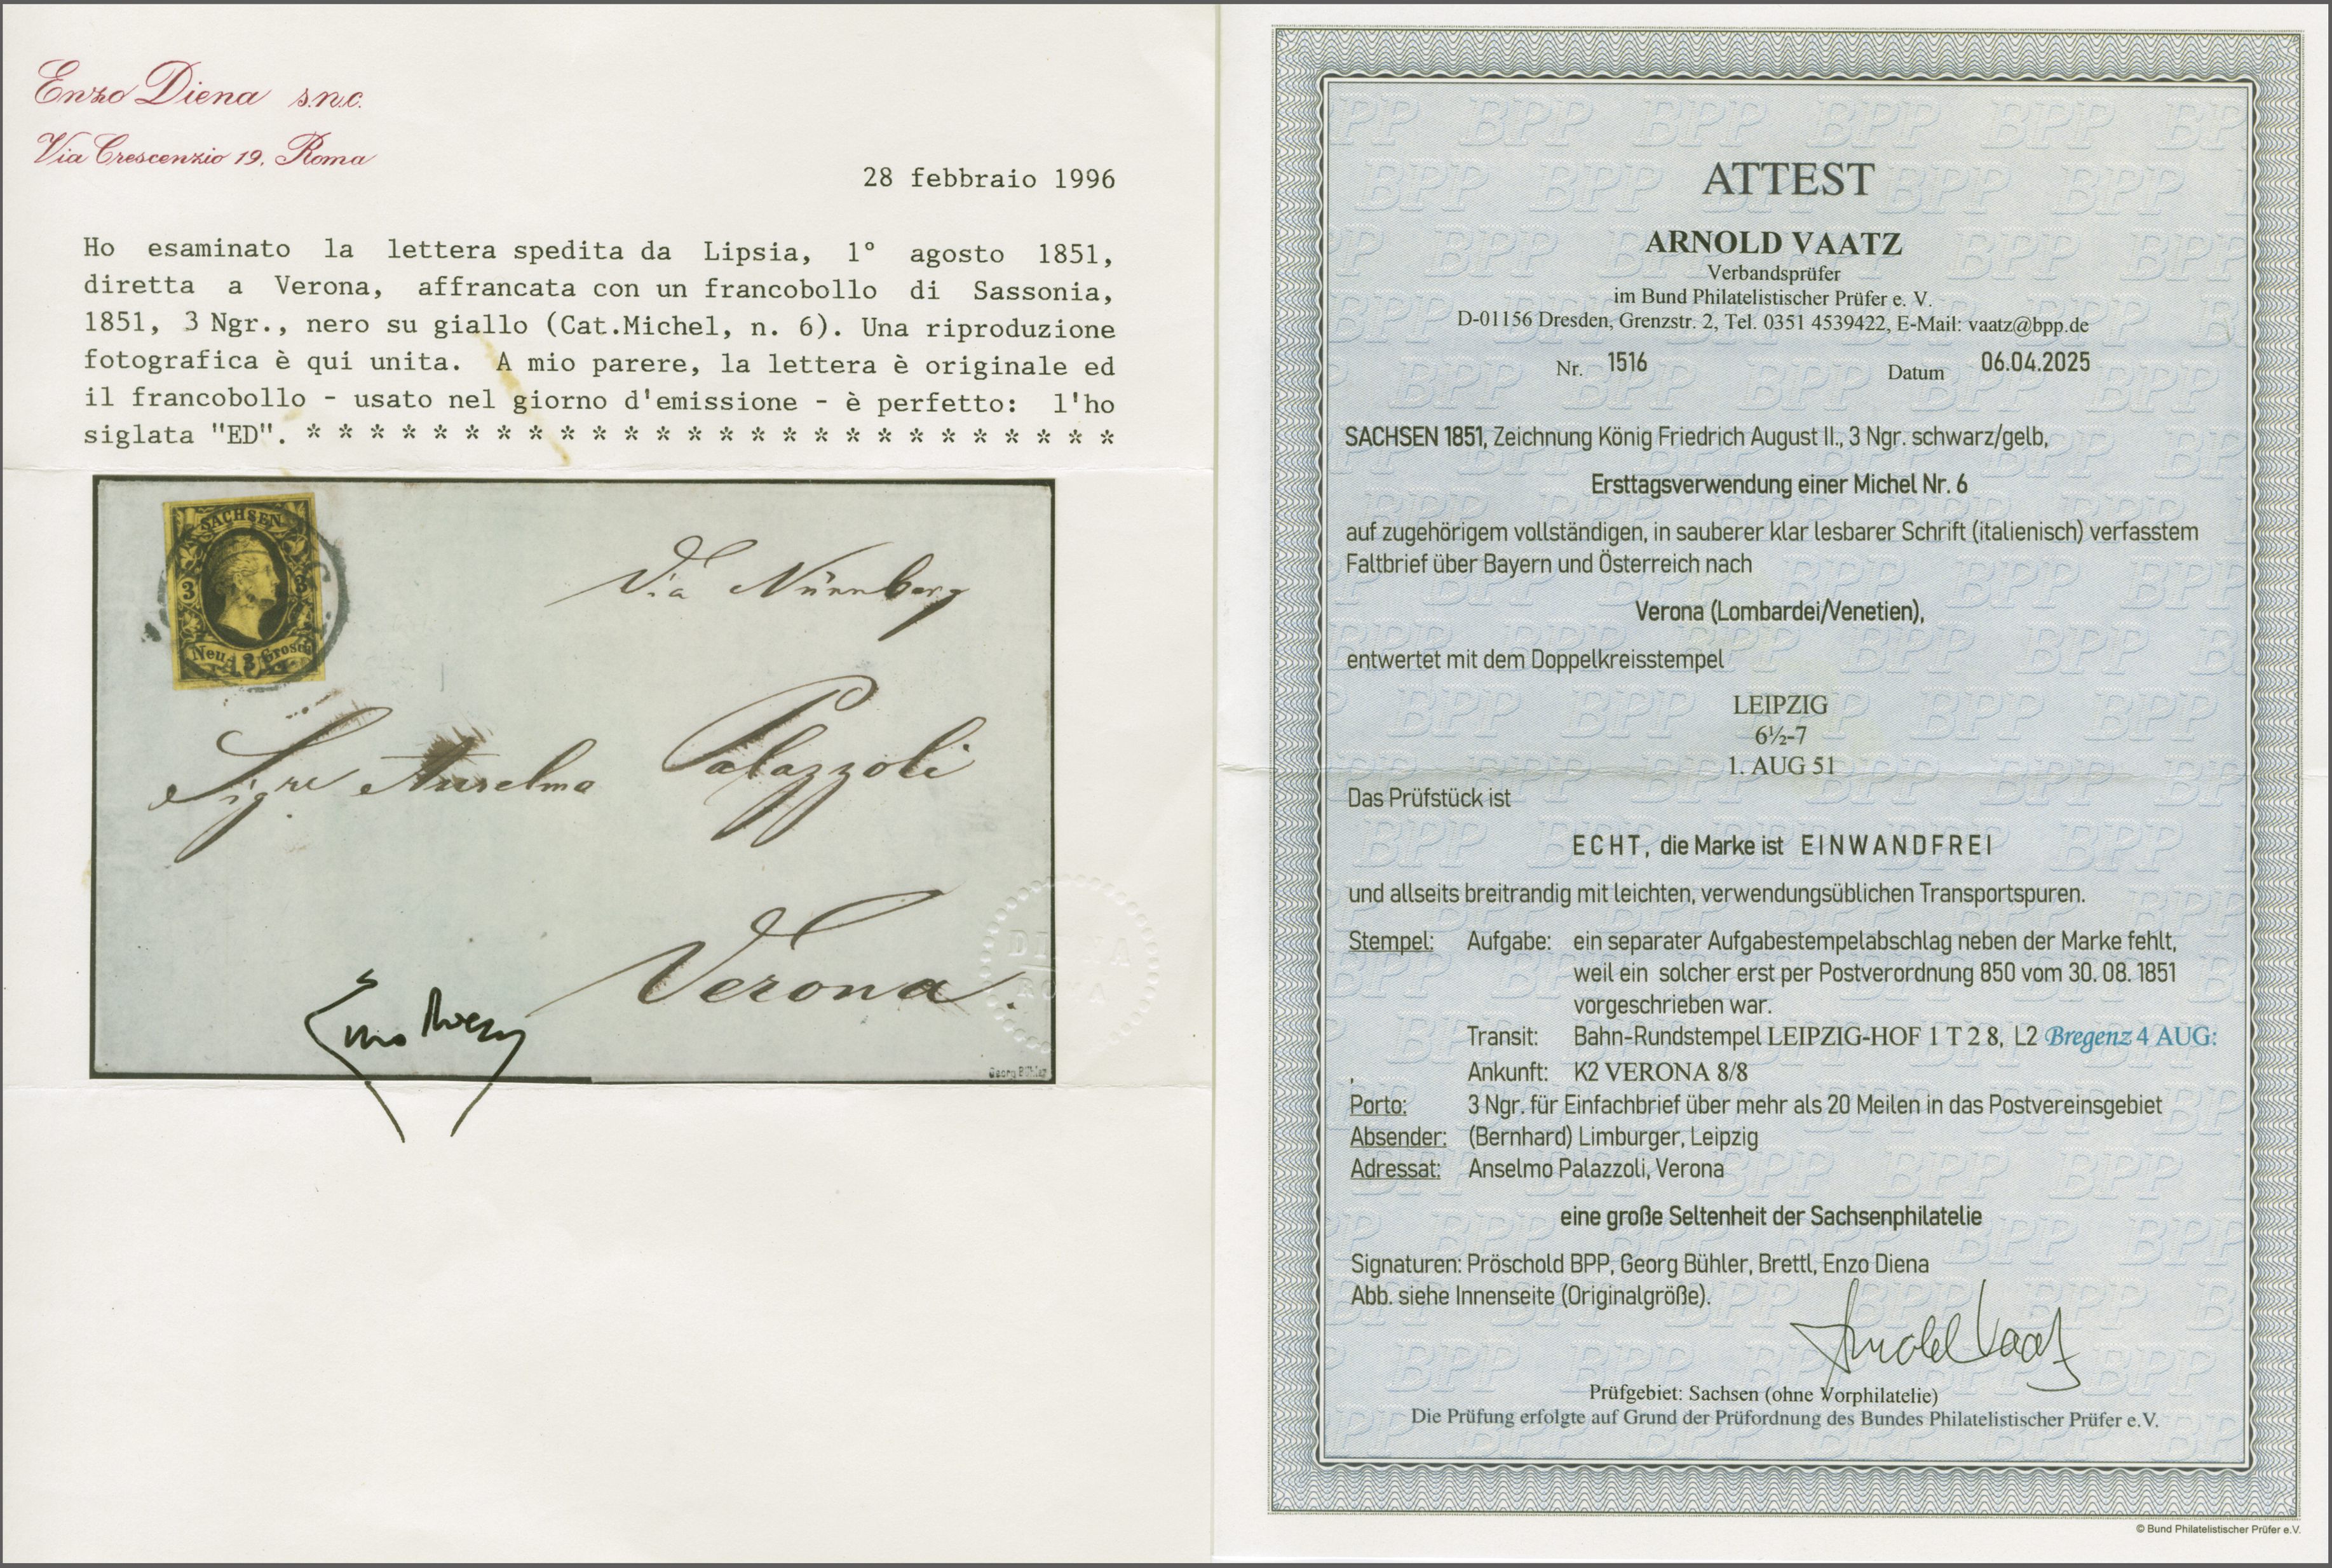 Enzo Diena s.n.c.
Via Crescenzio 19, Roma
28 febbraio 1996
Ho esaminato la lettera spedita da Lipsia, 1° agosto 1851,
diretta a Verona, affrancata con un francobollo di Sassonia,
1851, 3 Ngr., nero su giallo (Cat.Michel, n. 6). Una riproduzione
fotografica è qui unita. A mio parere, la lettera è originale ed
il francobollo - usato nel giorno d'emissione - è perfetto: l'ho
siglata "ED". * * * * * * * * * * * * * * * * * * * * * * * * * *
SACHSEN
3 3
Neu 3 Grosch
Via Nürnberg
Sigre Anselmo Palazzoli
Verona.
DIENA
ROMA
Georg Bühler
ATTEST
ARNOLD VAATZ
Verbandsprüfer
im Bund Philatelistischer Prüfer e. V.
D-01156 Dresden, Grenzstr. 2, Tel. 0351 4539422, E-Mail: vaatz@bpp.de
Nr. 1516 Datum 06.04.2025
SACHSEN 1851, Zeichnung König Friedrich August II., 3 Ngr. schwarz/gelb,
Ersttagsverwendung einer Michel Nr. 6
auf zugehörigem vollständigen, in sauberer klar lesbarer Schrift (italienisch) verfasstem
Faltbrief über Bayern und Österreich nach
Verona (Lombardei/Venetien),
entwertet mit dem Doppelkreisstempel
LEIPZIG
6½-7
1. AUG 51
Das Prüfstück ist
ECHT, die Marke ist EINWANDFREI
und allseits breitrandig mit leichten, verwendungsüblichen Transportspuren.
Stempel: Aufgabe: ein separater Aufgabestempelabschlag neben der Marke fehlt,
weil ein solcher erst per Postverordnung 850 vom 30. 08. 1851
vorgeschrieben war.
Transit: Bahn-Rundstempel LEIPZIG-HOF 1 T 2 8, L2 Bregenz 4 AUG:
, Ankunft: K2 VERONA 8/8
Porto: 3 Ngr. für Einfachbrief über mehr als 20 Meilen in das Postvereinsgebiet
Absender: (Bernhard) Limburger, Leipzig
Adressat: Anselmo Palazzoli, Verona
eine große Seltenheit der Sachsenphilatelie
Signaturen: Pröschold BPP, Georg Bühler, Brettl, Enzo Diena
Abb. siehe Innenseite (Originalgröße).
Arnold Vaatz
Prüfgebiet: Sachsen (ohne Vorphilatelie)
Die Prüfung erfolgte auf Grund der Prüfordnung des Bundes Philatelistischer Prüfer e.V.
© Bund Philatelistischer Prüfer e.V.